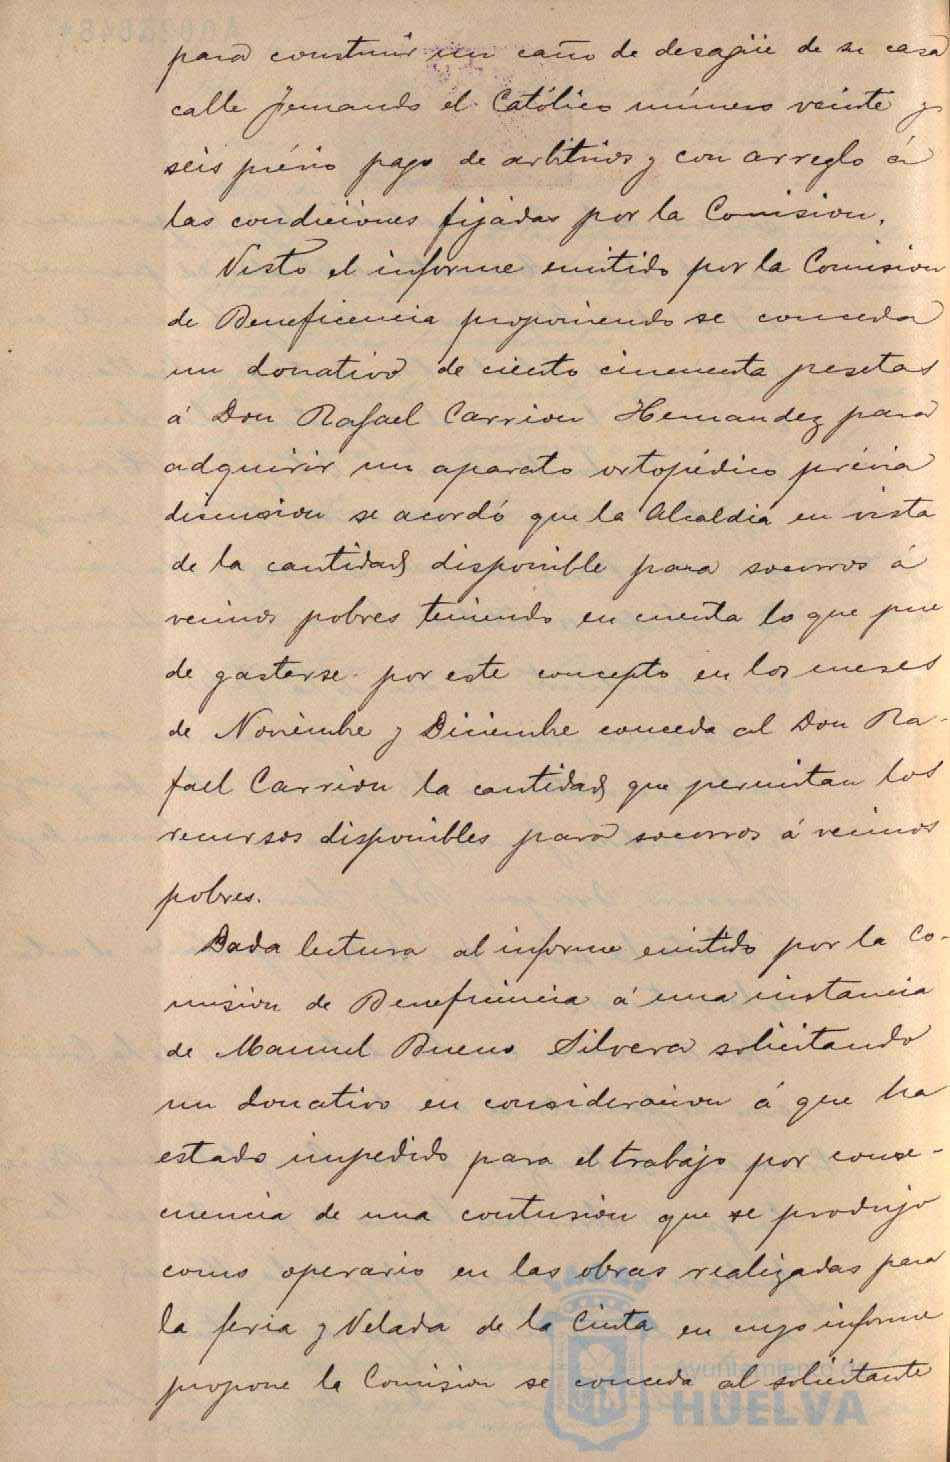 para construir un caño de desagüe de su casa
calle Fernando el Católico número veinte y
seis prévio pago de arbitrios y con arreglo á
las condiciones fijadas por la Comision.
Visto el informe emitido por la Comision
de Beneficencia proponiendo se conceda
un donativo de ciento cincuenta pesetas
á Don Rafael Carrion Hernandez para
adquirir un aparato ortopédico prévia
discusion se acordó que la Alcaldia en vista
de la cantidad disponible para socorros á
vecinos pobres teniendo en cuenta lo que pue
de gastarse por este concepto en los meses
de Noviembre y Diciembre conceda al Don Ra-
fael Carrion la cantidad que permitan los
recursos disponibles para socorros á vecinos
pobres.
Dada lectura al informe emitido por la Co-
mision de Beneficencia á una instancia
de Manuel Bueno Silvera solicitando
un donativo en consideracion á que ha
estado impedido para el trabajo por conse-
cuencia de una contusion que se produjo
como operario en las obras realizadas para
la feria y Velada de la Cinta en cuyo informe
propone la Comision se conceda al solicitante
Ayuntamiento de
HUELVA